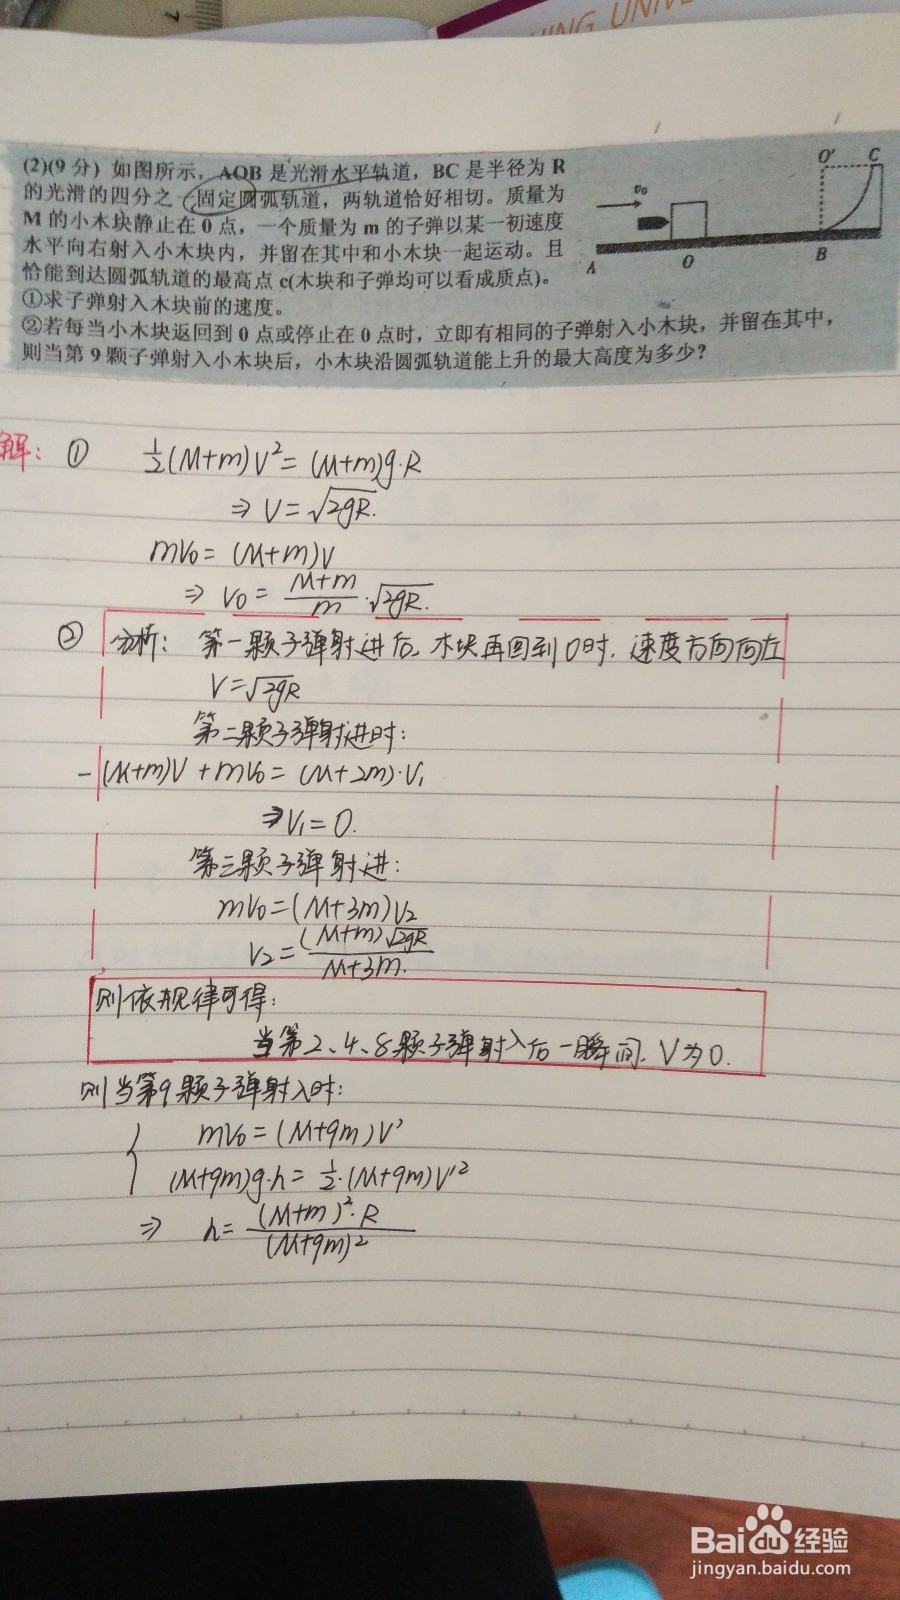 HING UNIV
(2)(9分) 如图所示，AOB 是光滑水平轨道，BC 是半径为 R
的光滑的四分之一固定圆弧轨道，两轨道恰好相切。质量为
M 的小木块静止在 0 点，一个质量为 m 的子弹以某一初速度
水平向右射入小木块内，并留在其中和小木块一起运动。且
恰能到达圆弧轨道的最高点 c(木块和子弹均可以看成质点)。
①求子弹射入木块前的速度。
②若每当小木块返回到 0 点或停止在 0 点时，立即有相同的子弹射入小木块，并留在其中，
则当第 9 颗子弹射入小木块后，小木块沿圆弧轨道能上升的最大高度为多少?
O' C
v₀
A O B
解: ① ½(M+m)V²=(M+m)g·R
⇒ V=√2gR.
mV₀=(M+m)V
⇒ V₀= (M+m)/m ·√2gR.
② 分析: 第一颗子弹射进后, 木块再回到O时, 速度方向向左
V=√2gR
第二颗子弹射进时:
-(M+m)V+mV₀=(M+2m)·V₁
⇒V₁=0.
第三颗子弹射进:
mV₀=(M+3m)V₂
V₂= (M+m)√2gR / M+3m.
则依规律可得:
当第2、4、8颗子弹射入后一瞬间, V为0.
则当第9颗子弹射入时:
mV₀=(M+9m)V'
(M+9m)g·h=½·(M+9m)V'²
⇒ h= (M+m)²·R / (M+9m)²
Baidu经验
jingyan.baidu.com